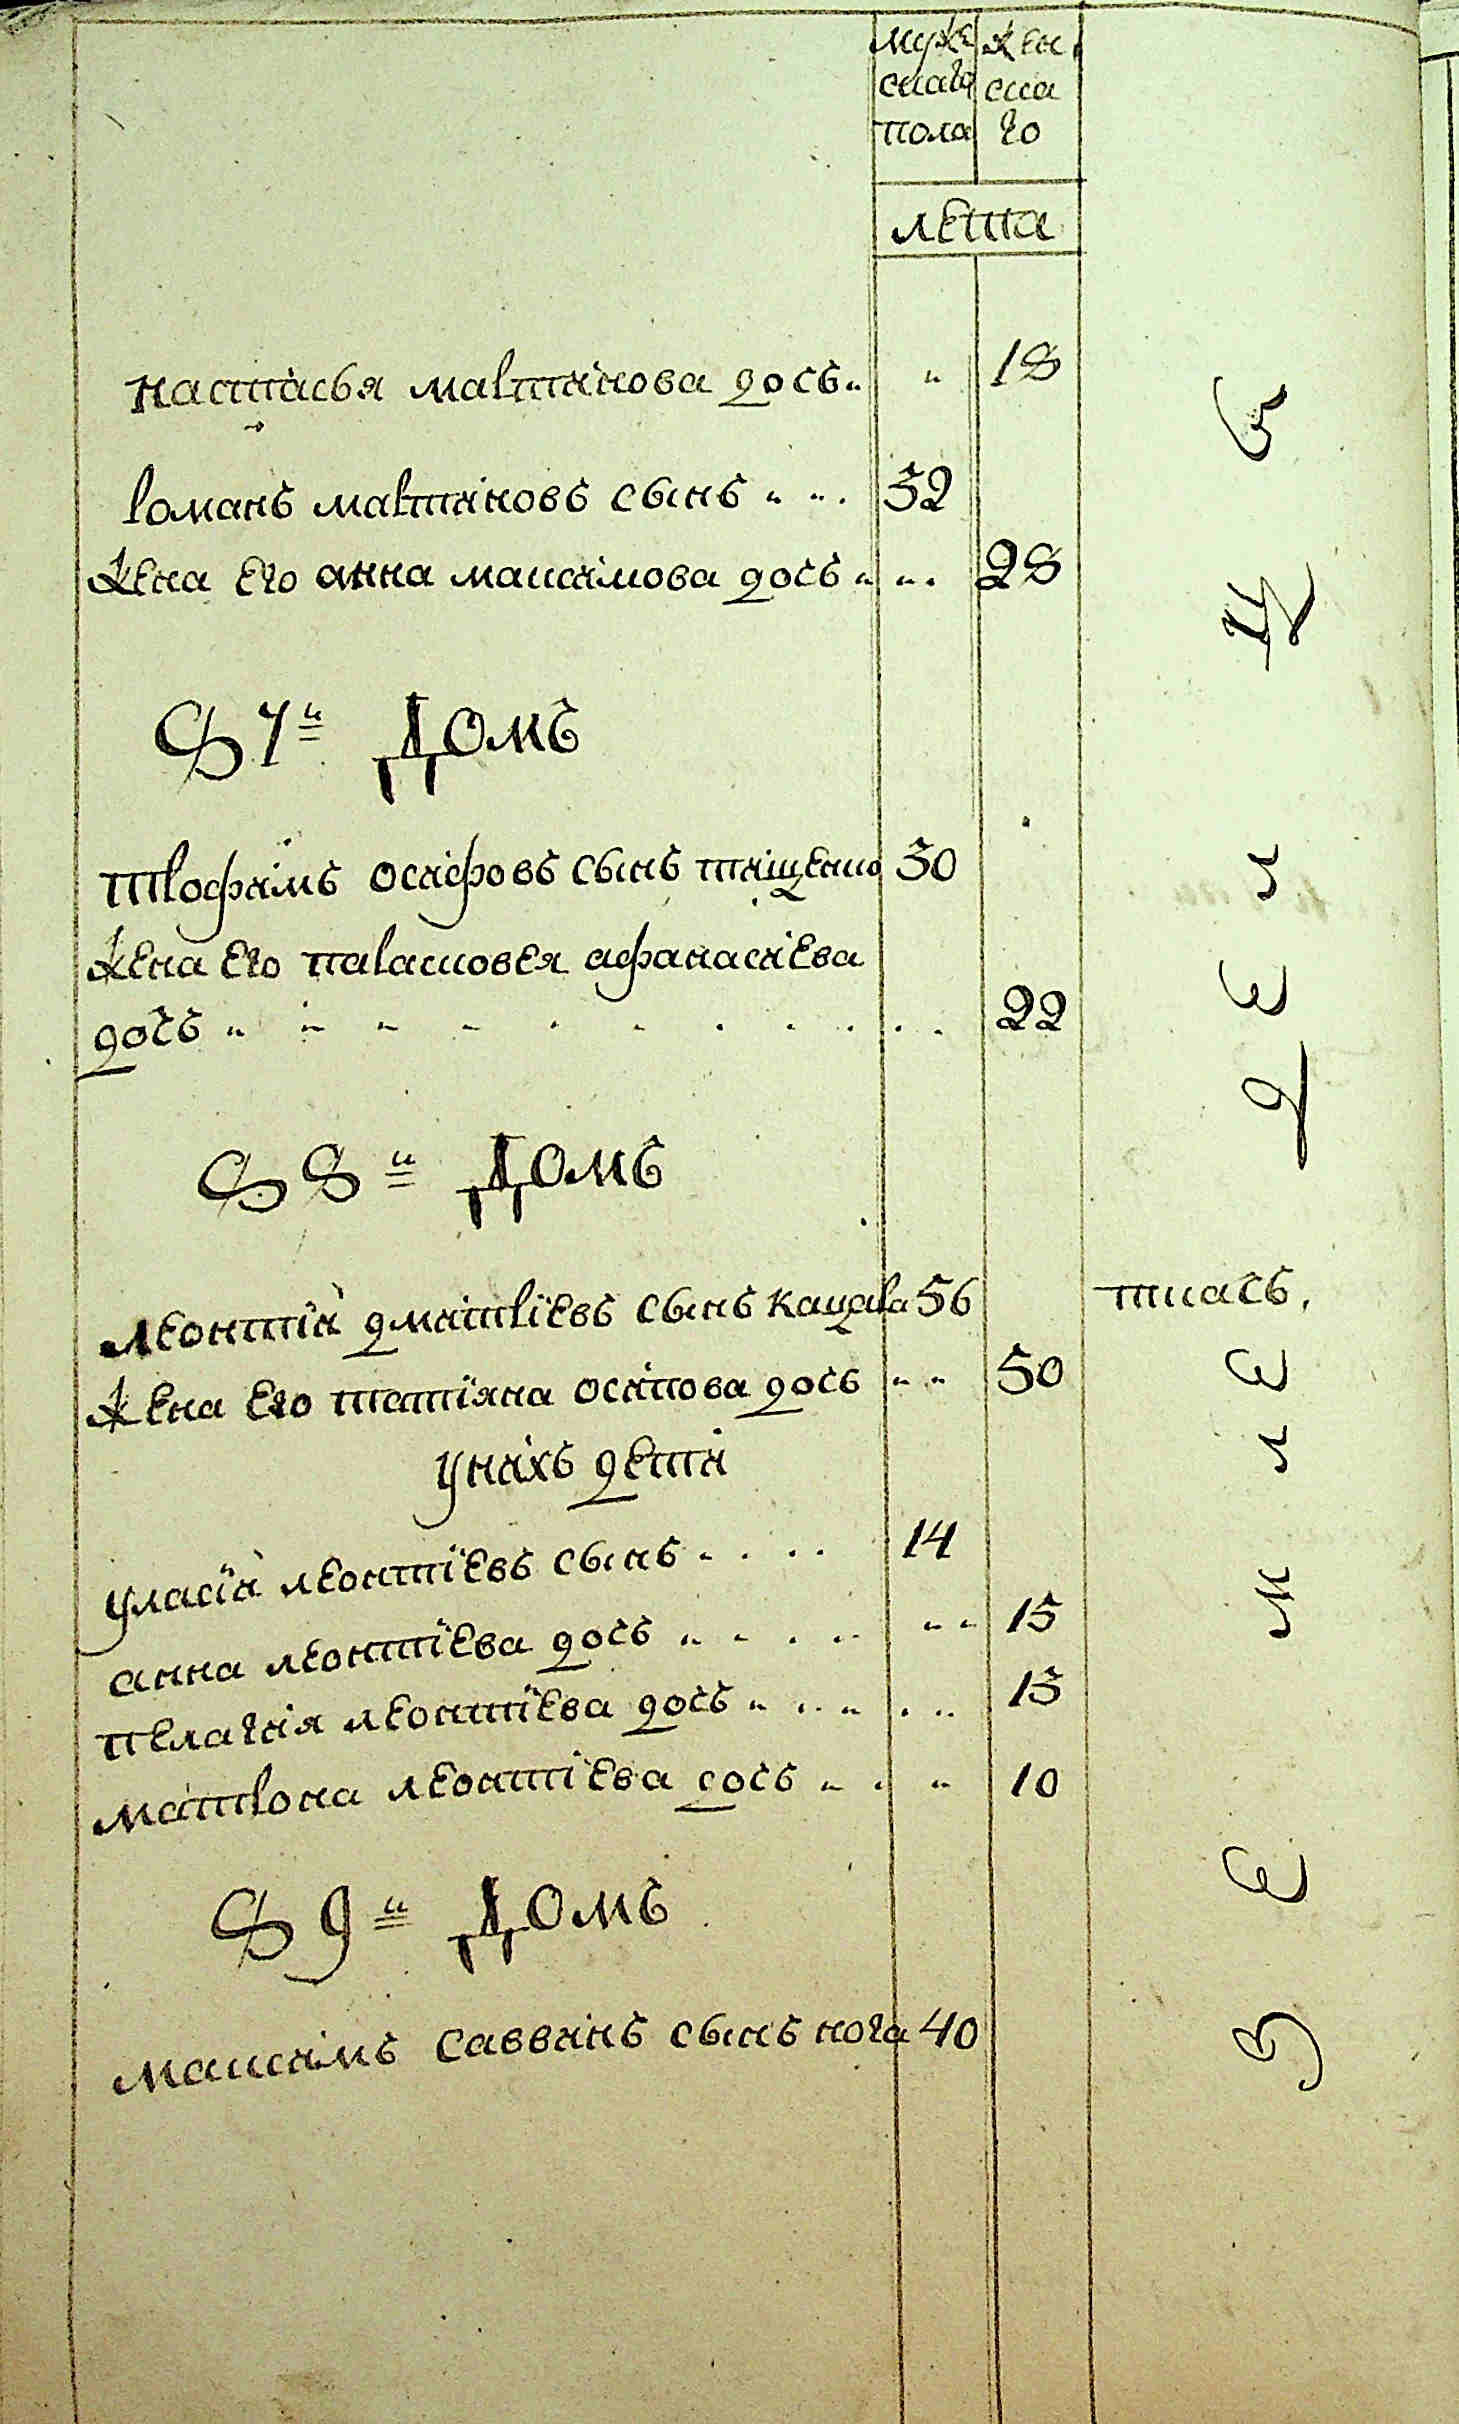 мужескаго пола
женскаго
лета
настасья мартинова дочъ 18
романъ мартиновъ сынъ 32
жена его анна максимова дочъ 28
57й домъ
трофимъ осифовъ сынъ тищенко 30
жена его парасковея афанасиева
дочъ 22
58й домъ
леонтїй дмитрїевъ сынъ кацара 56
жена его татїяна осипова дочъ 50
у нихъ дети
уласїй леонтїевъ сынъ 14
анна леонтїева дочъ 15
пелагия леонтїева дочъ 13
матрона леонтїева дочъ 10
59й домъ
максимъ саввинъ сынъ нога 40
тнасъ.